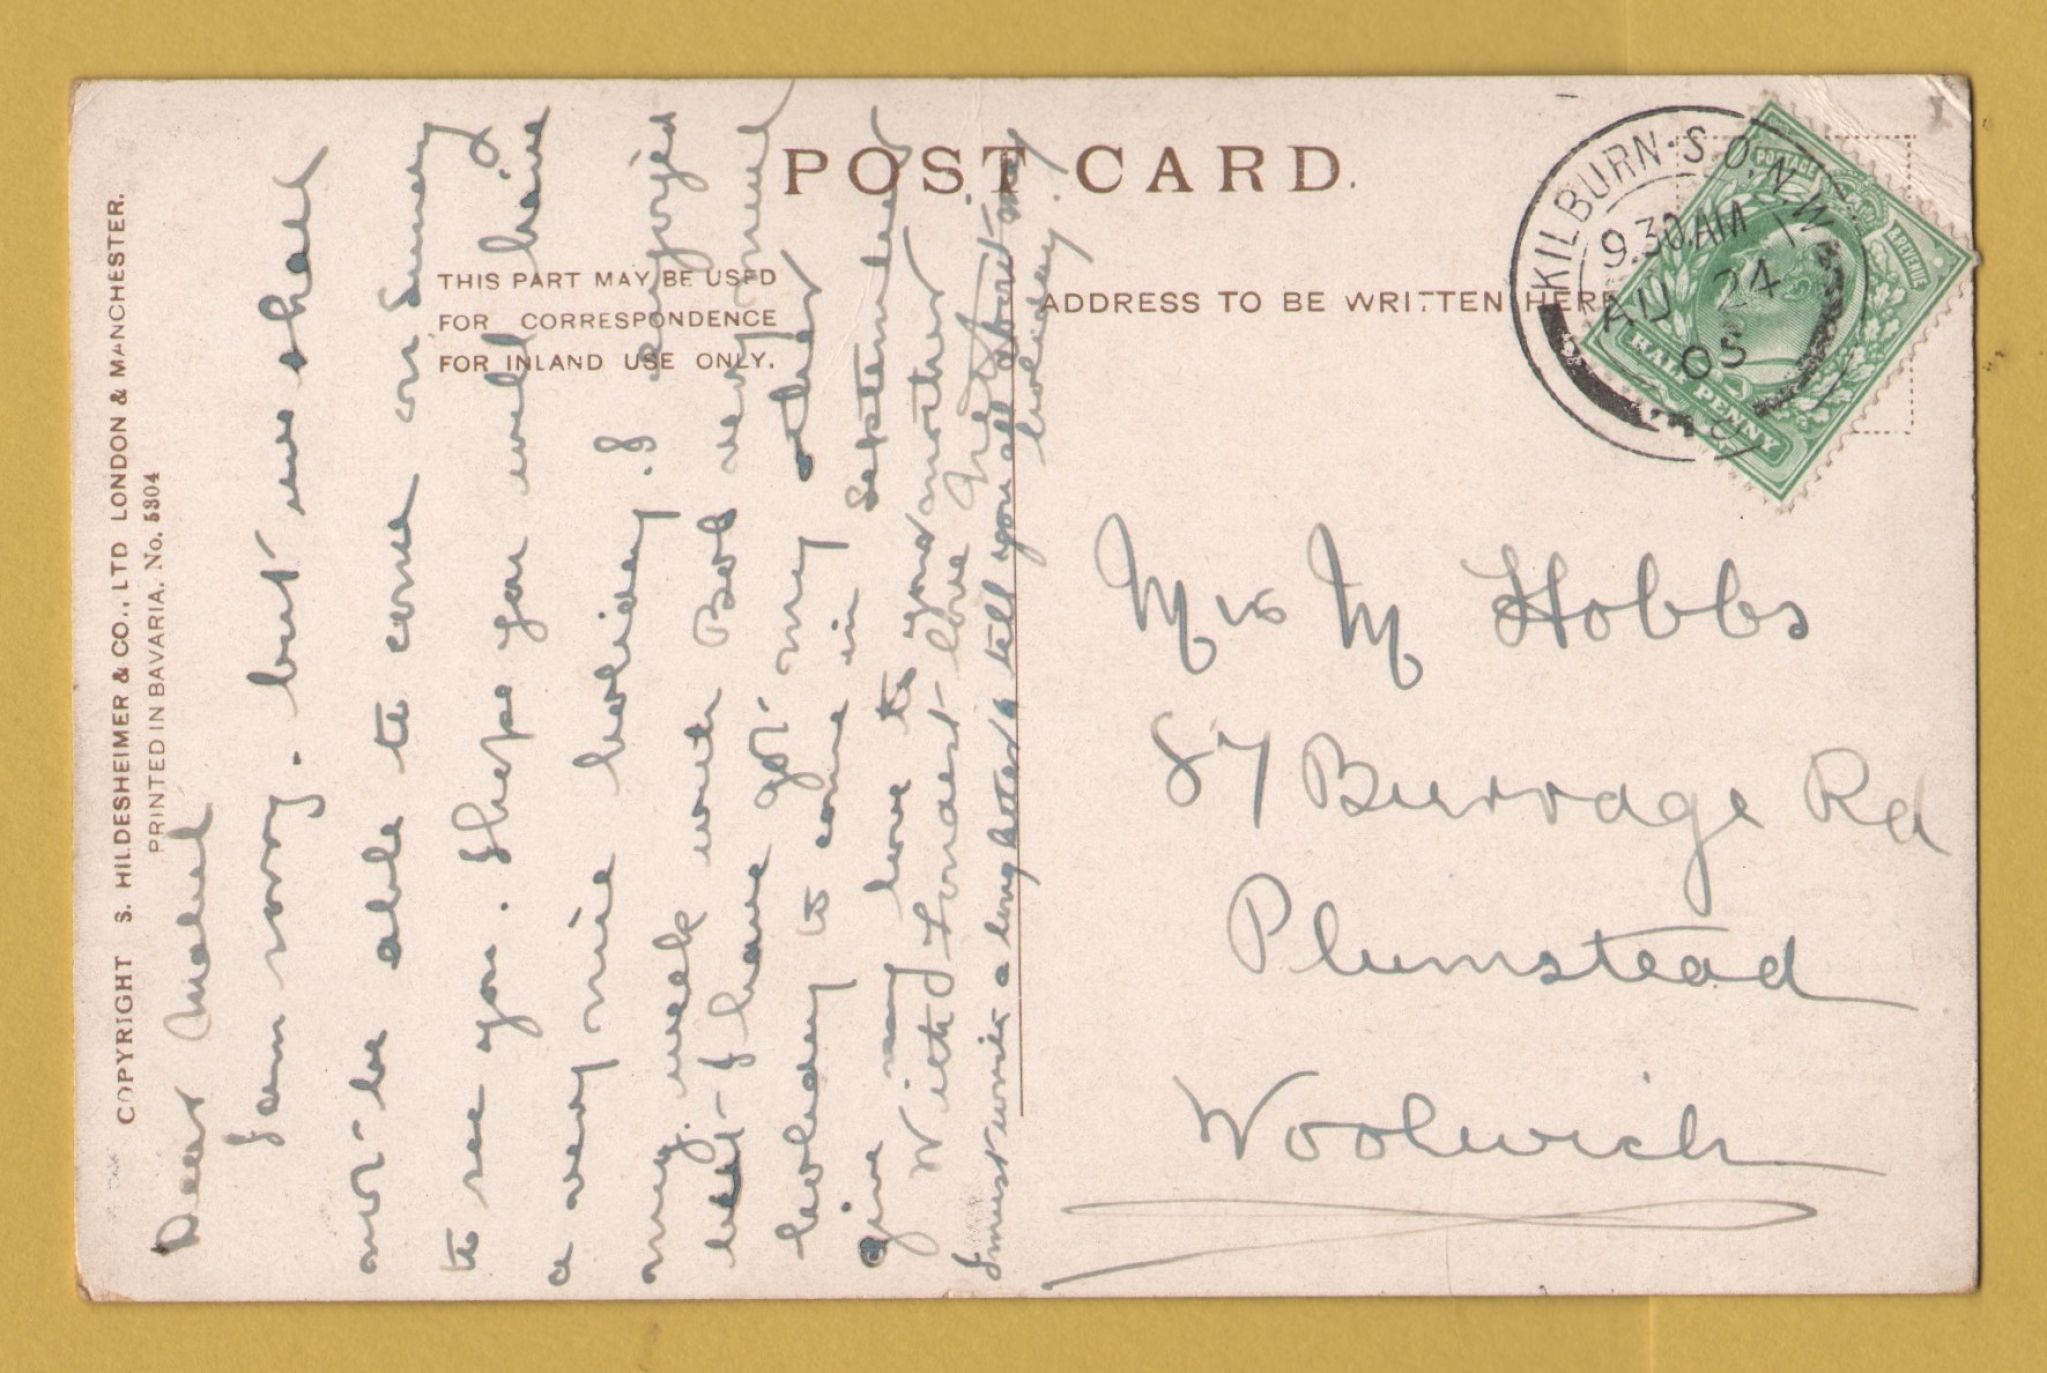 COPYRIGHT S. HILDESHEIMER & CO., LTD LONDON & MANCHESTER.
PRINTED IN BAVARIA. No. 5304
POST CARD.
THIS PART MAY BE USED
FOR CORRESPONDENCE
FOR INLAND USE ONLY.
ADDRESS TO BE WRITTEN HERE
KILBURN·S.O.N.W
9.30AM
AU 24
05
POSTAGE
& REVENUE
HALF PENNY
Dear Mabel
I am sorry - but we shall
not be able to come on Sunday
to see you. I hope you will have
a very nice holiday. I enjoyed
my week with Bob very much
but I have got my other
holiday to come in September
give my love to your mother
With Fondest love
I must write a long letter & tell you all about my
holiday.
Miss M Hobbs
87 Burrage Rd
Plumstead
Woolwich